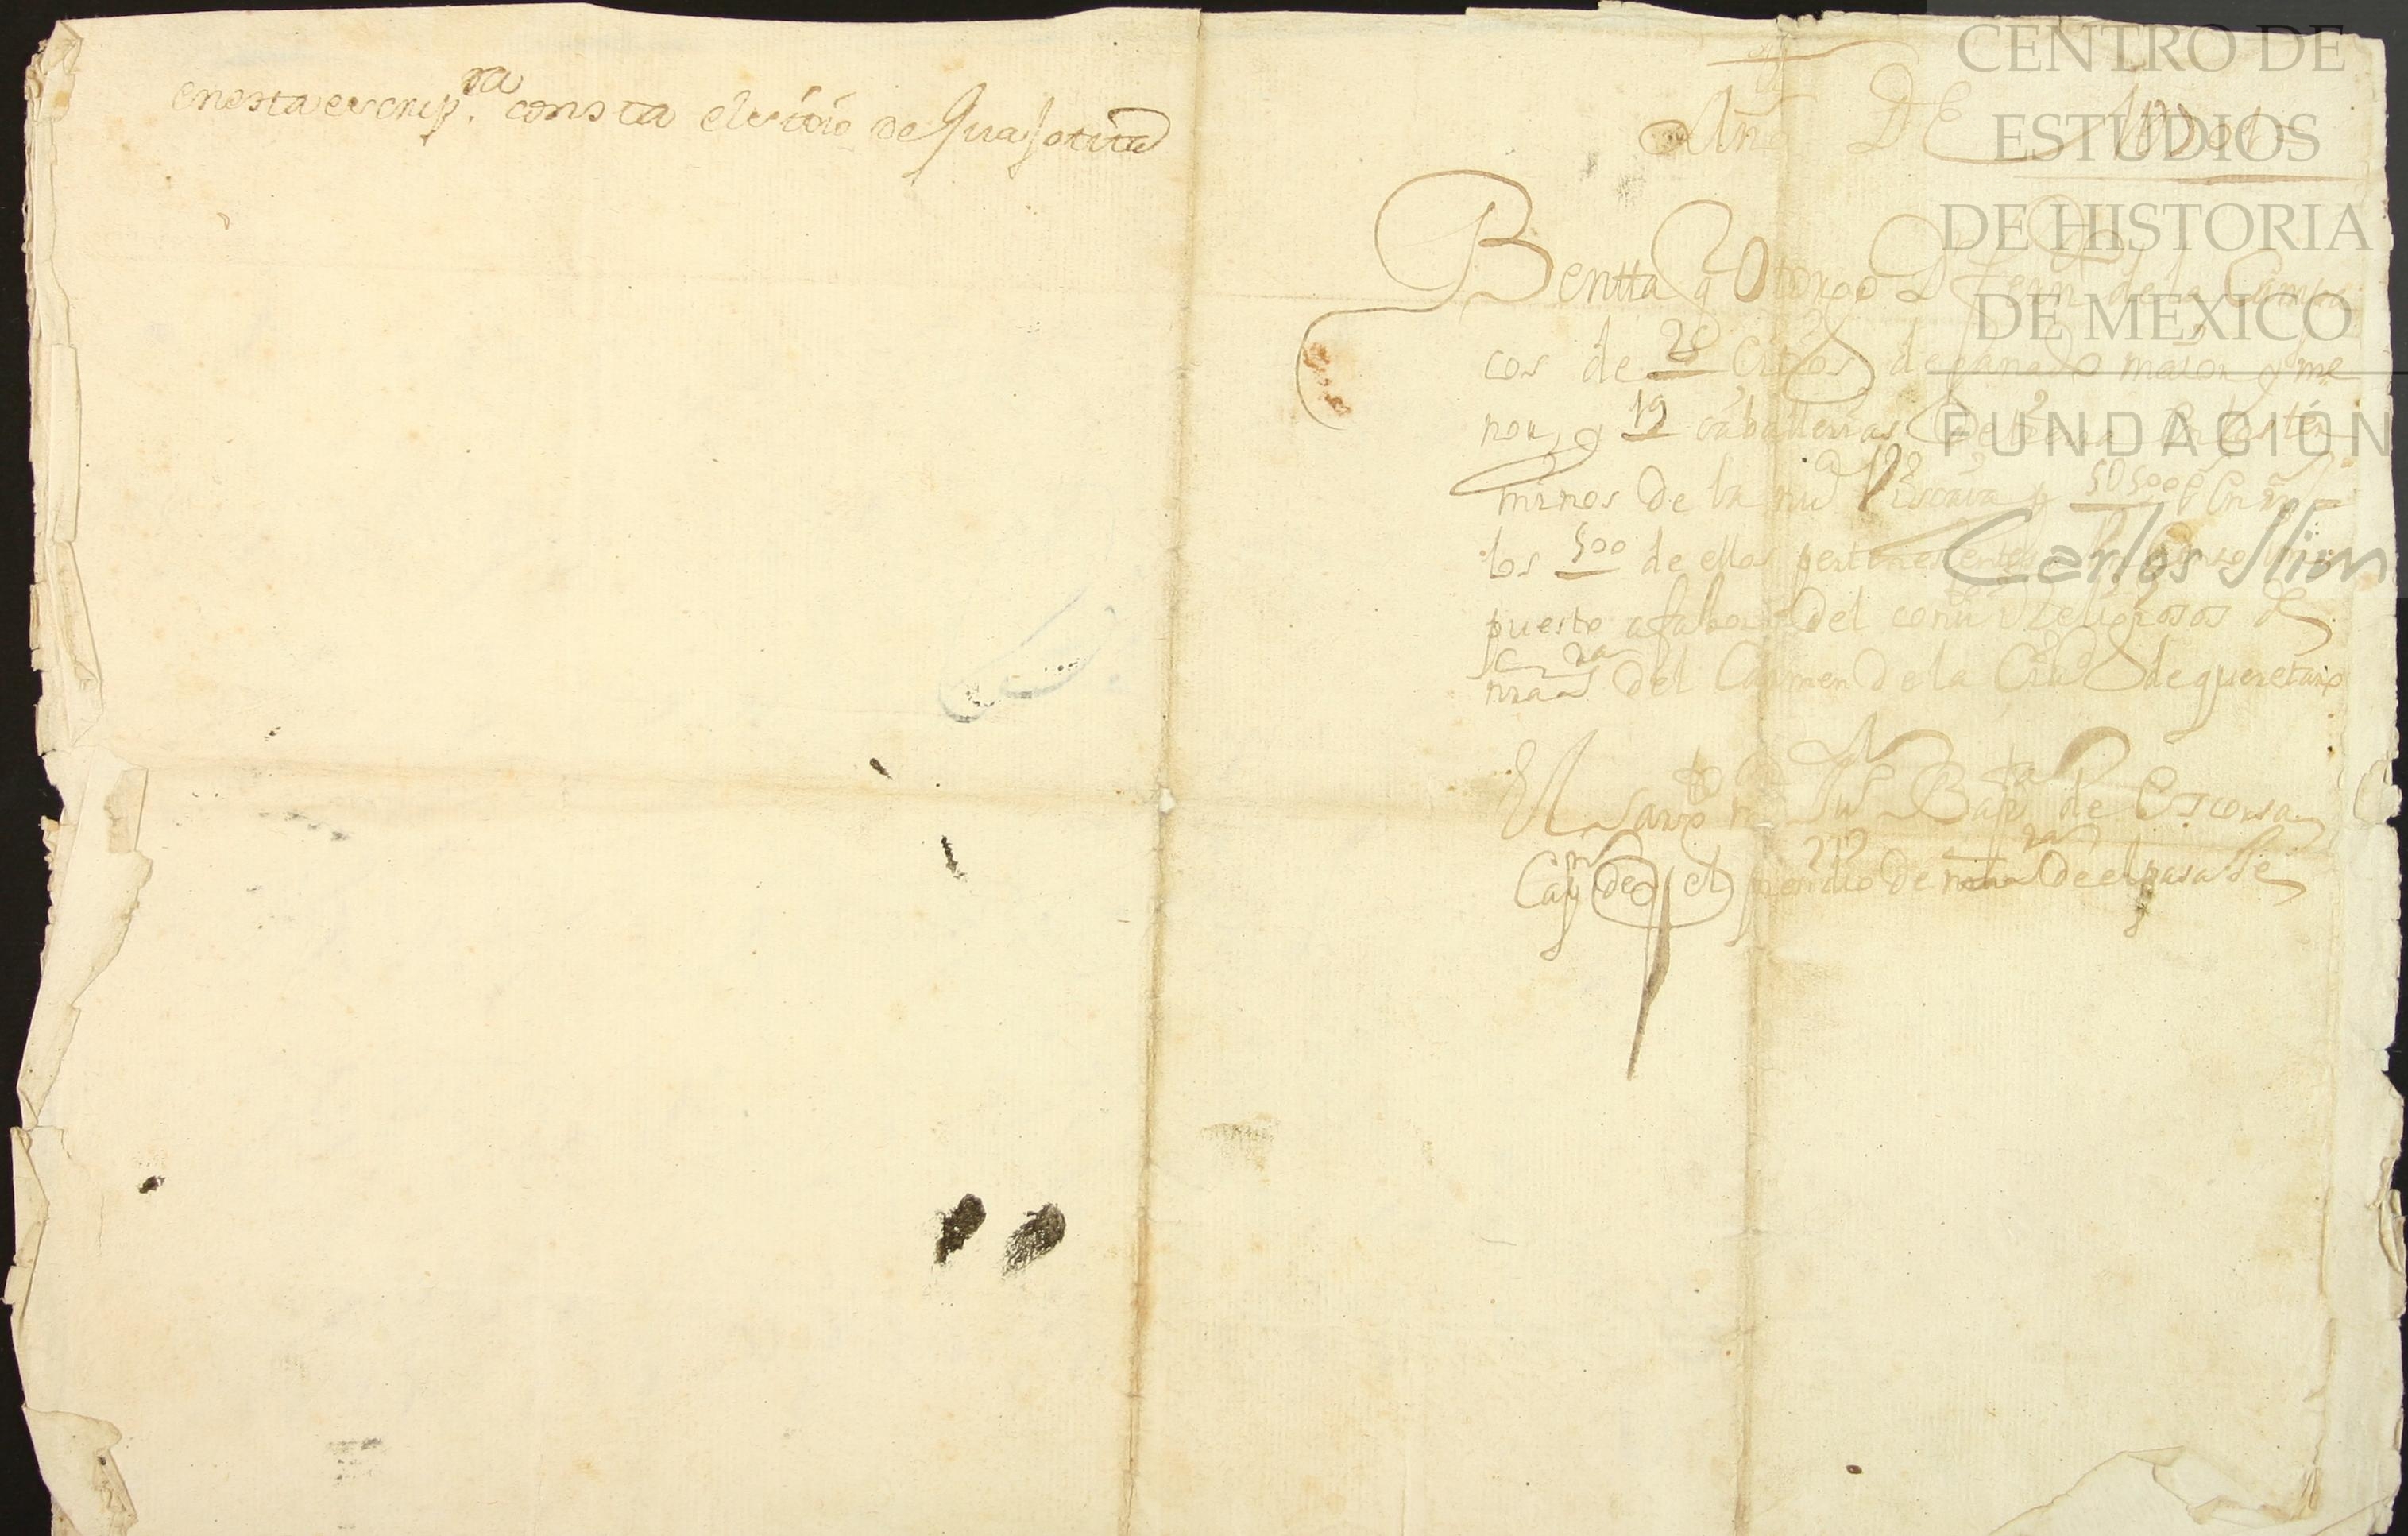 en esta escrip.ra consta el sitio de Guajotita
Año DE
Bentta q Otorgo D Fern de la Campa
cos de 26 Citios de ganado maior y me
nor, y 19 caballerias de tierra en los ter
minos de la nua Viscaia y 5D500 p en rs
los 500 de ellos pertenesientes
puesto a fabor del conu.to Religiosos de
nra S.ra del Carmen de la Ciud de queretaro
Al Sarg.to m.r Jun Bap.ta de Escorsa
Cap.n de el presidio de el pasaJe
CENTRO DE
ESTUDIOS
DE HISTORIA
DE MÉXICO
FUNDACIÓN
Carlos Slim